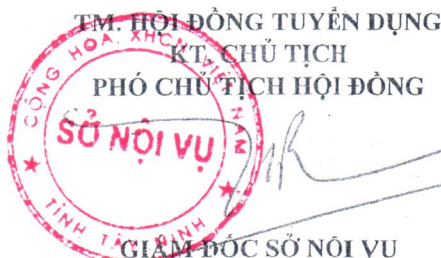 TM. HỘI ĐỒNG TUYỂN DỤNG
KT. CHỦ TỊCH
PHÓ CHỦ TỊCH HỘI ĐỒNG
CỘNG HÒA XHCN VIỆT NAM
SỞ NỘI VỤ
TỈNH TÂY NINH
GIÁM ĐỐC SỞ NỘI VỤ